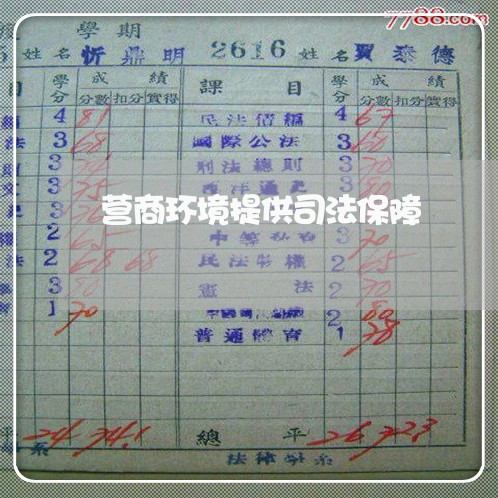 7788.com
學期
姓名 忻鼎明 2616 姓名 賈泰德
目 學分 成績 課目 學分 成績
分數 扣分 實得 分數 扣分 實得
4 81 民法債編 4 67
法 3 68 國際公法 3 60
3 刑法總則 3 70
文 3 75 西洋通史 3 80
營商环境提供司法保障
2 65 3 70
法 2 68 68 民法物權 2 65
3 80 憲法 2 70
1 70 2 80
普通體育 1 78
平 24 74.1 總平 26 72.3
系 法律學系